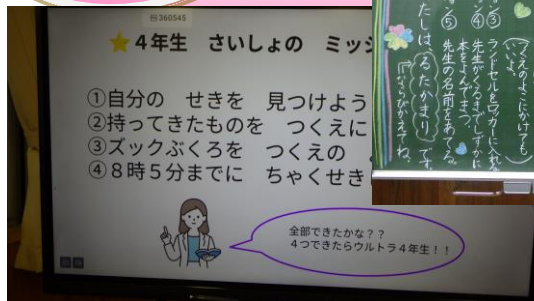 360545
⭐4年生 さいしょの ミッシ
①自分の せきを 見つけよう
②持ってきたものを つくえに
③ズックぶくろを つくえの
④8時5分までに ちゃくせき
全部できたかな??
4つできたらウルトラ4年生!!
つくえのよこにかけても
いいよ。
③ランドセルをロッカーに入れる
④先生がくるまでしずかに
本をよんでまつ。
⑤先生の名前をあてる。
たしは、るたかまりです。
ならびかえてね。